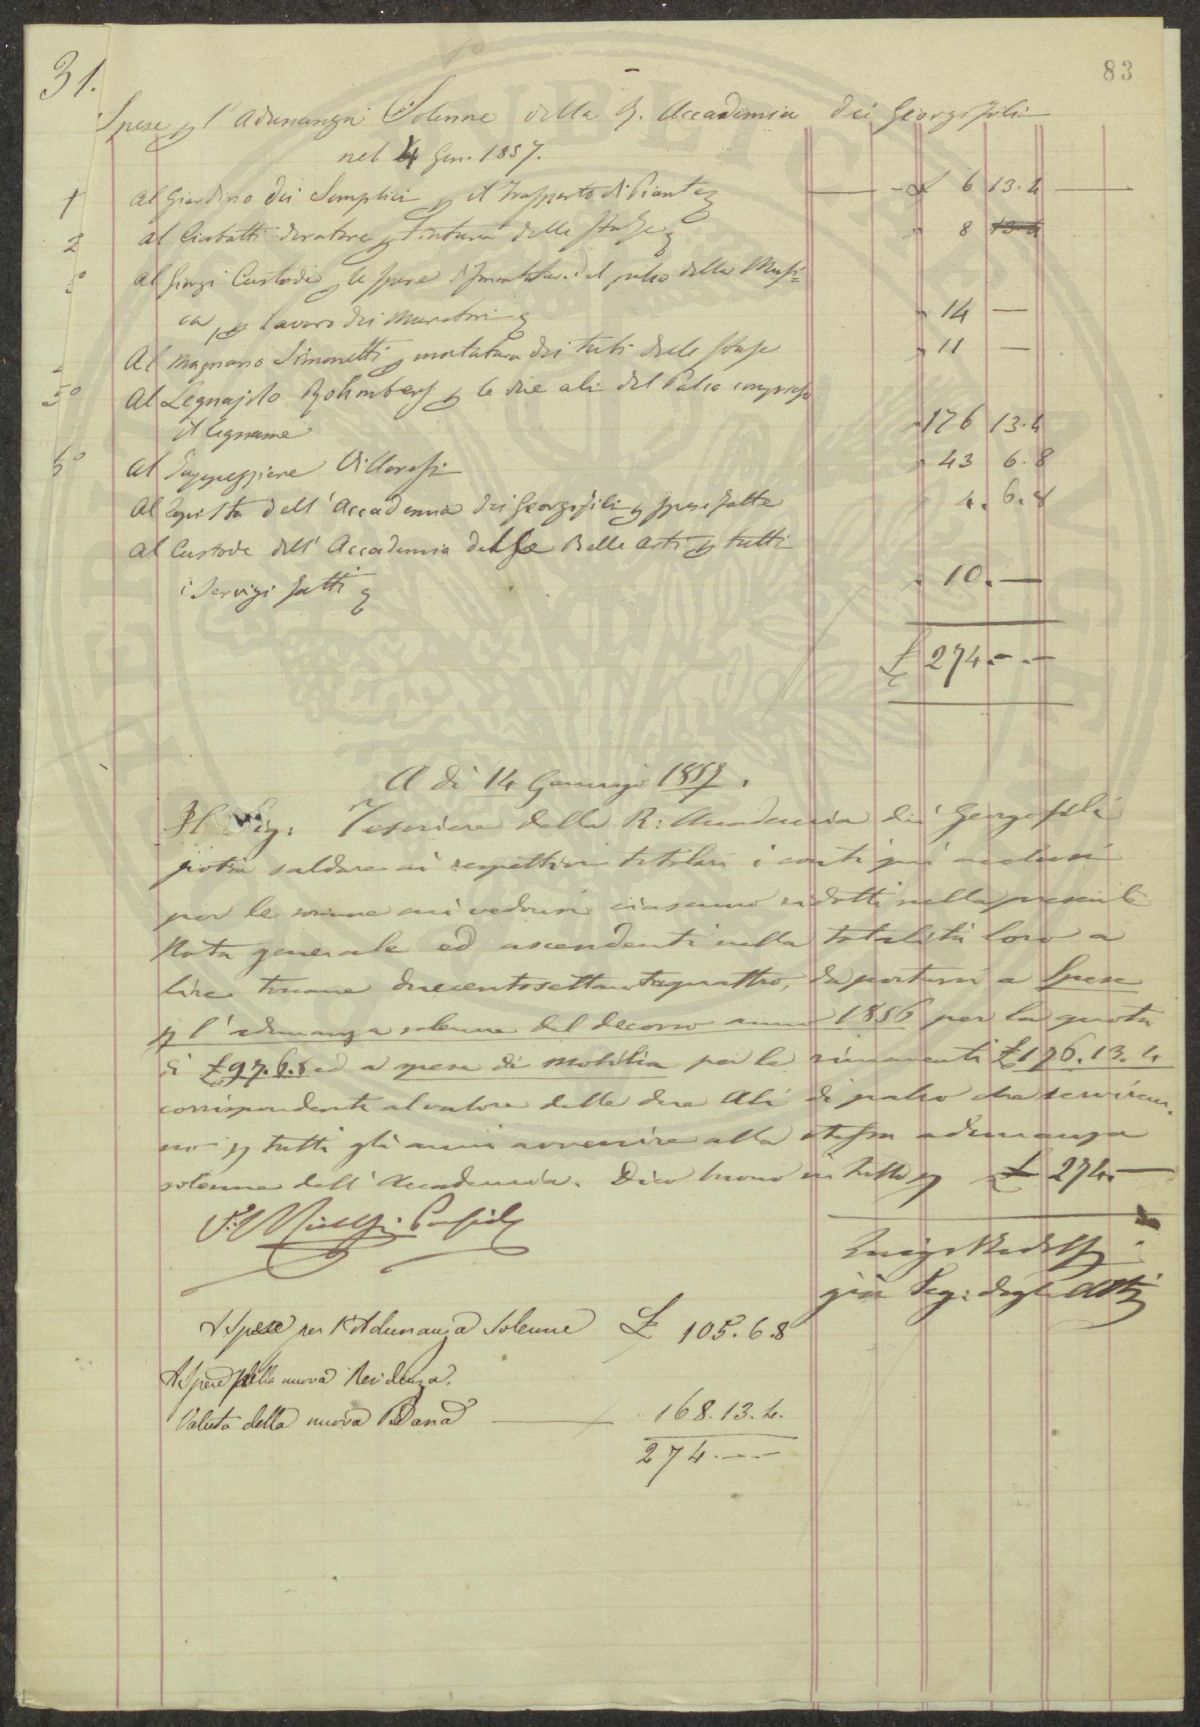 31.
83
Spese p l'Adunanza Solenne della R. Accademia dei Georgofili
nel 4 Gen. 1857.
1 Al Giardino dei Semplici p il trasporto di Piante £ 6 13.4
2 Al Ciabatti doratore p tintura delle stufe " 8 13.4
3° Al Giorgi Custode p le spese di smontatura del palco della Musi=
ca, e p lavoro dei Muratori " 14 —
Al Magnano Simonetti p montatura dei tubi delle stufe " 11 —
5° Al Legnajolo p le due ali del Palco compreso
il legname " 176 13.4
6° Al Tappezziere Villoresi " 43 6.8
Al Copista dell'Accademia dei Georgofili p spese fatte " 4. 6.8
Al Custode dell'Accademia delle Belle Arti p tutti
i Servigi fatti " 10. —
£ 274. — . —
A dì 14 Gennajo 1857.
Il Sig: Tesoriere della R: Accademia dei Georgofili
potrà saldare ai respettivi titolari i conti qui acclusi
per le somme cui vedonsi ciascuno ridotti nella presente
Nota generale ed ascendenti nella totalità loro a
lire toscane duecentosettantaquattro, da portarsi a Spese
p l'adunanza solenne del decorso anno 1856 per la quota
di £ 97.6.8 ed a spese di Mobilia per le rimanenti £ 176.13.4
corrispondenti al valore delle due Ali di palco che serviran=
no p tutti gli anni avvenire alla stessa adunanza
solenne dell'Accademia. Dico buono in tutto p £ 274. —
Luigi Ridolfi
già Seg: degli Atti
A Spese per l'Adunanza Solenne £ 105.6.8
A Spese della nuova Residenza.
Valuta della nuova Pedana — 168.13.4.
274. — —